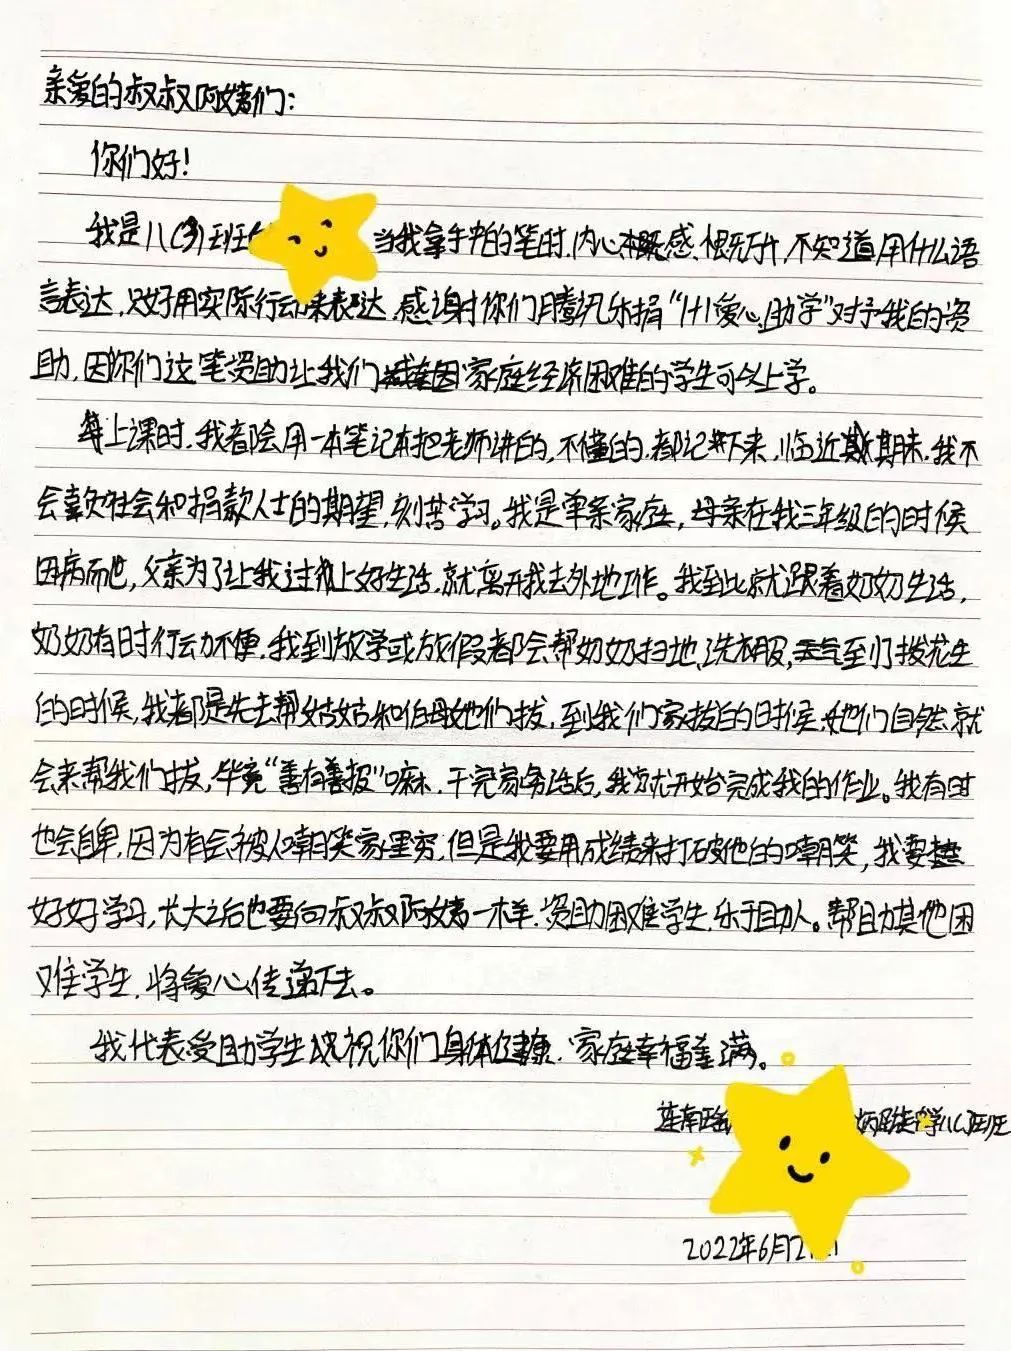 亲爱的叔叔阿姨们：
你们好！
我是八(3)班 当我拿手中的笔时,内心感慨万千,不知道用什么语
言表达,只好用实际行动来表达,感谢对你们腾讯乐捐“1+1爱心助学”对予我的资
助,因你们这笔资助让我们家庭经济困难的学生可以上学。
每上课时,我都会用一本笔记本把老师讲的,不懂的,都记下来,临近期末,我不
会辜负社会和捐款人士的期望,刻苦学习。我是单亲家庭,母亲在我三年级的时候
因病而他,父亲为了让我过上好生活,就离开我去外地工作。我到此就跟着奶奶生活,
奶奶有时行动不便,我到放学或放假都会帮奶奶扫地、洗衣服,至于拔花生
的时候,我都是先去帮姑姑和伯母她们拔,到我们家拔的时候,她们自然就
会来帮我们拔,毕竟“善有善报”嘛,干完家务活后,我就开始完成我的作业。我有时
也会自卑,因为有会被人嘲笑家里穷,但是我要用成绩来打破他的嘲笑,我要
好好学习,长大之后也要向叔叔阿姨一样,资助困难学生,乐于助人。帮助其他困
难学生,将爱心传递下去。
我代表受助学生祝你们身体健康,家庭幸福美满。
连南瑶 学八 班
2022年6月2